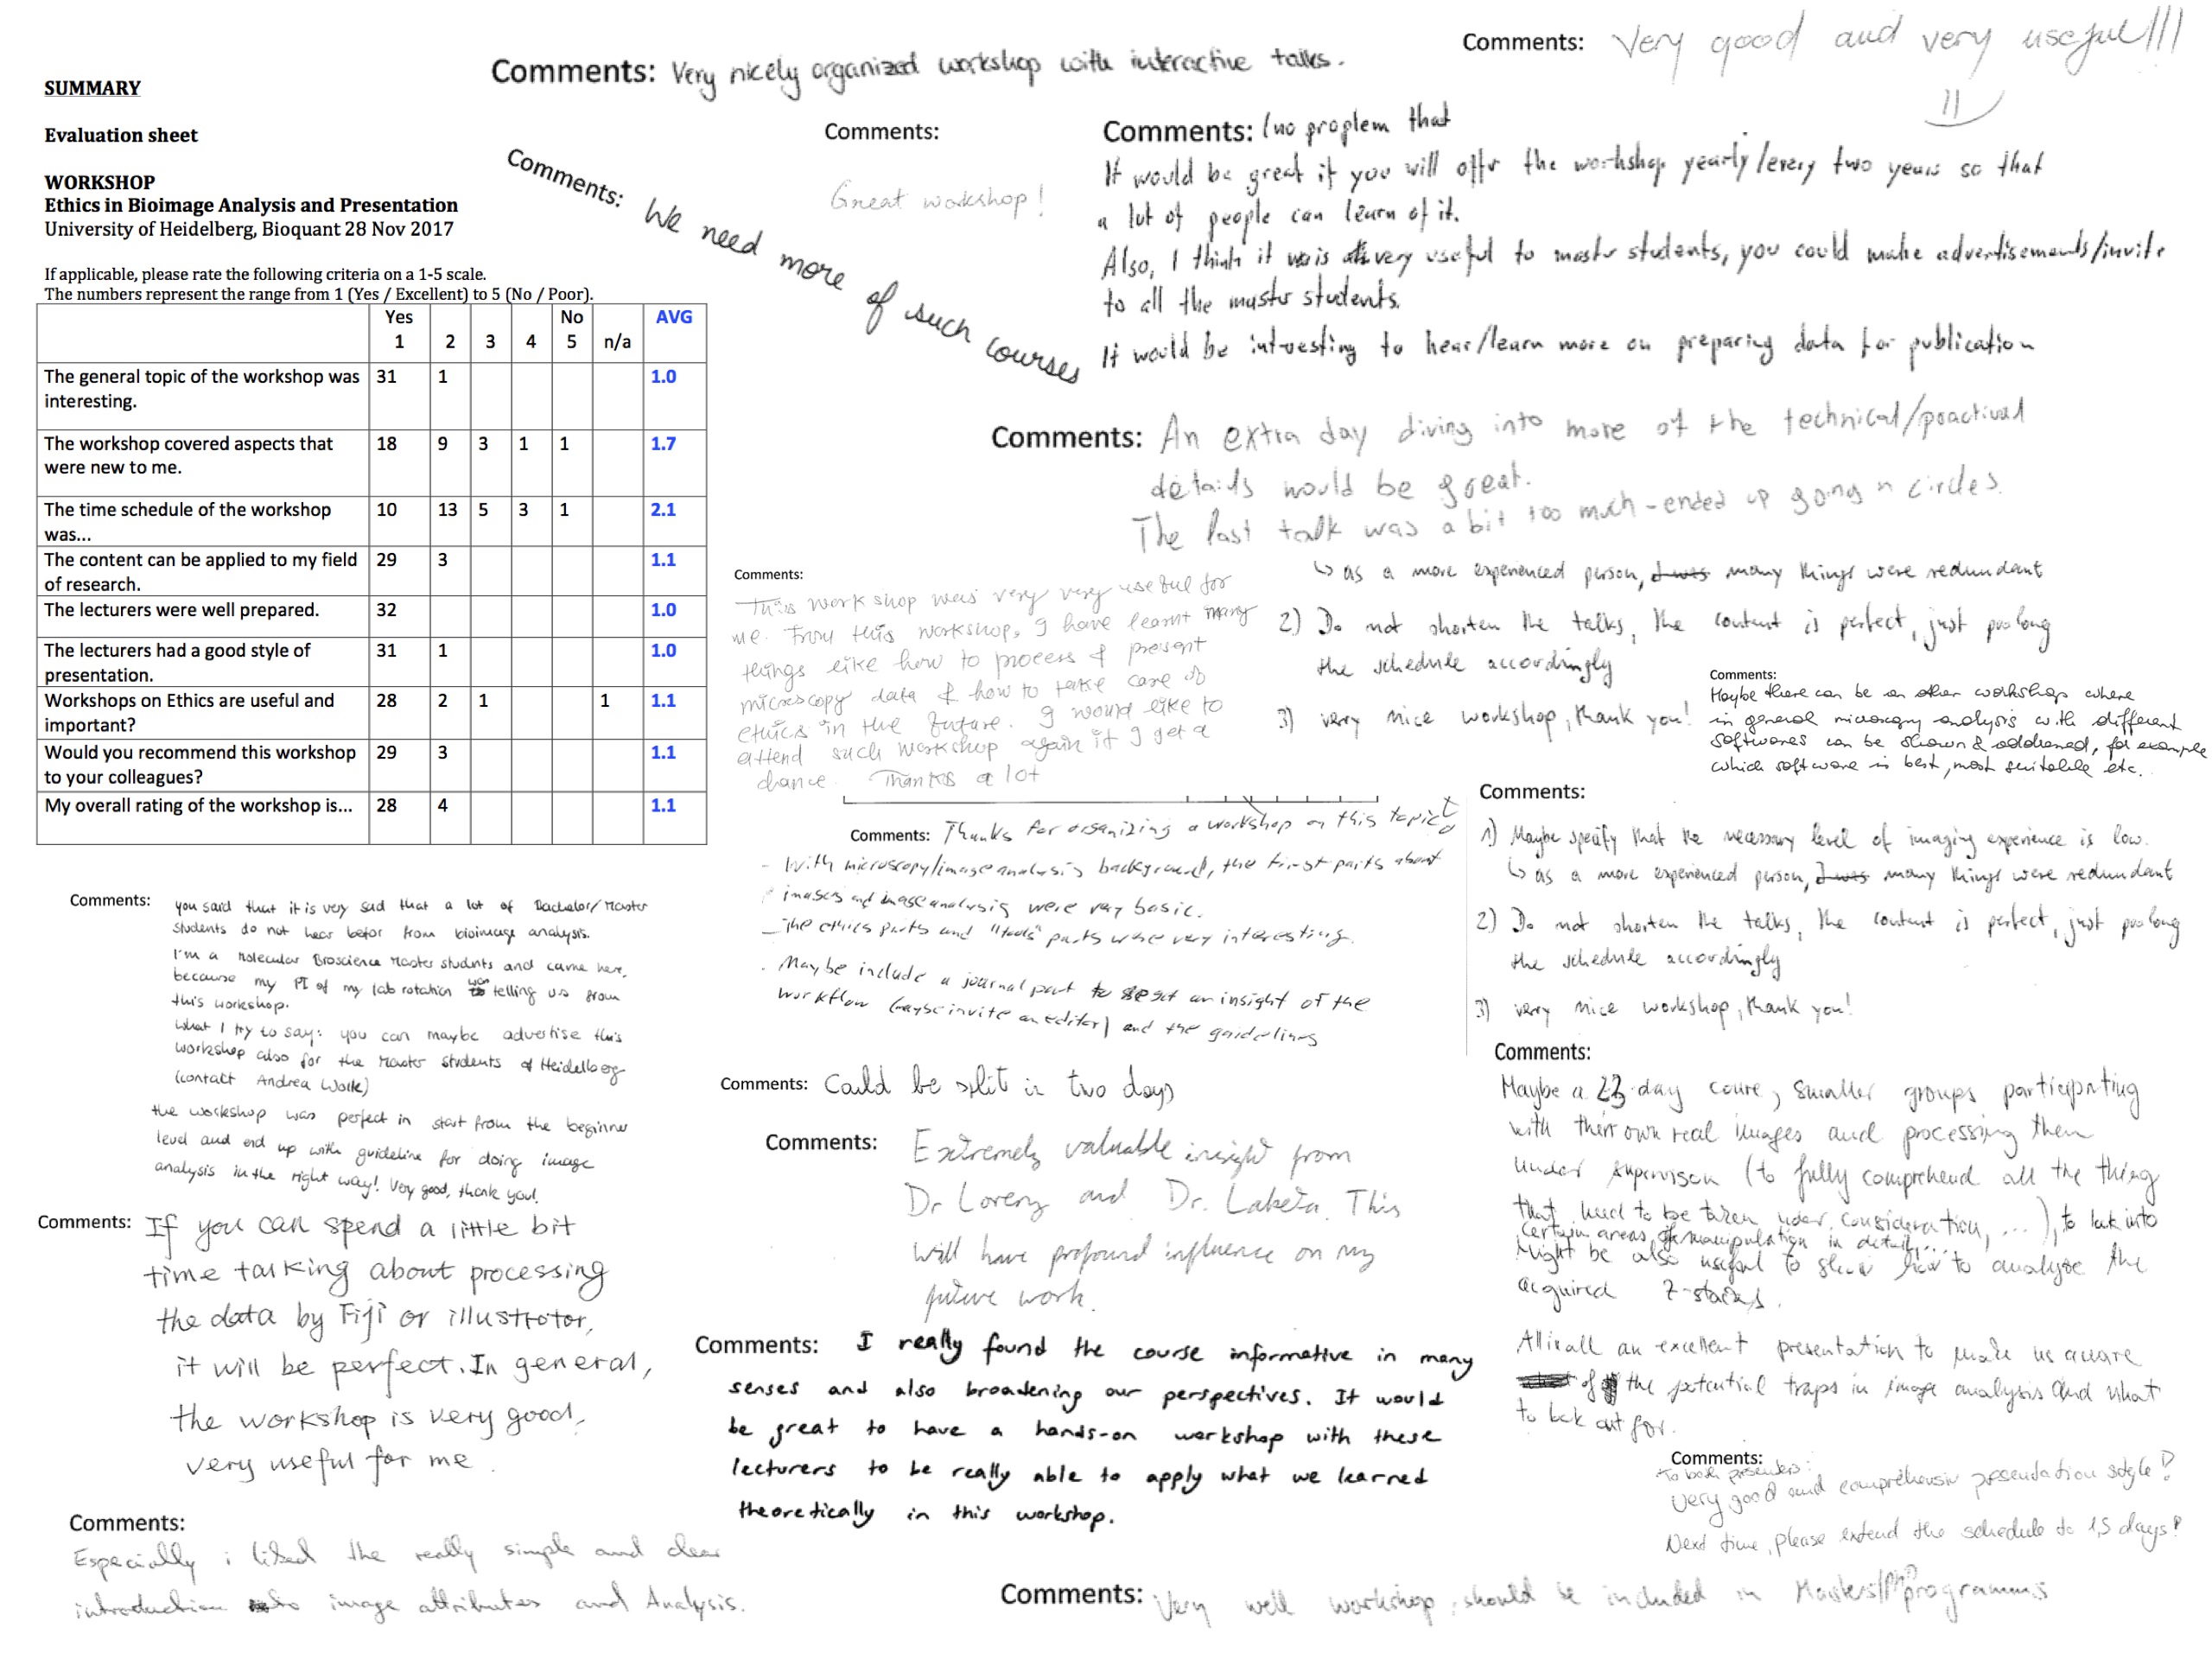 SUMMARY
Evaluation sheet
WORKSHOP
Ethics in Bioimage Analysis and Presentation
University of Heidelberg, Bioquant 28 Nov 2017
If applicable, please rate the following criteria on a 1-5 scale.
The numbers represent the range from 1 (Yes / Excellent) to 5 (No / Poor).
Yes 1 2 3 4 No 5 n/a AVG
The general topic of the workshop was interesting. 31 1 1.0
The workshop covered aspects that were new to me. 18 9 3 1 1 1.7
The time schedule of the workshop was... 10 13 5 3 1 2.1
The content can be applied to my field of research. 29 3 1.1
The lecturers were well prepared. 32 1.0
The lecturers had a good style of presentation. 31 1 1.0
Workshops on Ethics are useful and important? 28 2 1 1 1.1
Would you recommend this workshop to your colleagues? 29 3 1.1
My overall rating of the workshop is... 28 4 1.1
Comments: Very nicely organized workshop with interactive talks.
Comments: Very good and very useful!!!
Comments: We need more of such courses
Comments:
Great workshop!
Comments: (no proplem that
It would be great if you will offr the workshop yearly/every two years so that
a lot of people can learn of it.
Also, I think it is very useful to mastr students, you could make advertisements/invite
to all the mastr students.
It would be intresting to hear/learn more on preparing data for publication
Comments: An extra day diving into more of the technical/practical
details would be great.
The last talk was a bit too much - ended up going n circles.
↳ as a more experienced person, many things were redundant
2) Do not shorten the talks, the content is perfect, just prolong
the schedule accordingly
3) very nice workshop, thank you!
Comments:
This work shop was very very useful for
me. From this workshop, I have learnt many
things like how to process & present
microscopy data & how to take care of
ethics in the future. I would like to
attend such workshop again if I get a
chance. Thanks a lot
Comments:
Maybe there can be an other workshop where
in general microscopy analysis with different
softwares can be shown & addressed, for example
which software is best, most suitable etc.
Comments: Thanks for organizing a workshop on this topic!
- With microscopy/image analysis background, the first parts about
images and image analysis were very basic.
- The ethics parts and "tools" parts were very interesting.
. Maybe include a journal part to get an insight of the
workflow (maybe invite an editor) and the guidelines
Comments:
1) Maybe specify that the necessary level of imaging experience is low.
↳ as a more experienced person, many things were redundant
2) Do not shorten the talks, the content is perfect, just prolong
the schedule accordingly
3) very nice workshop, thank you!
Comments: you said that it is very sad that a lot of Bachelor/Master
students do not hear befor from bioimage analysis.
I'm a Molecular Bioscience Master students and came here,
because my PI of my lab rotation was telling us from
this workshop.
What I try to say: you can maybe advertise this
workshop also for the Master students of Heidelberg
(contact Andrea Wolk)
the workshop was perfect in start from the beginner
level and end up with guideline for doing image
analysis in the right way! Very good, thank you!
Comments: Could be split in two days
Comments: Extremely valuable insight from
Dr Lorenz and Dr. Laketa. This
will have profound influence on my
future work.
Comments:
Maybe a 23-day coure, smaller groups participating
with their own real images and processing them
under supervison (to fully comprehend all the thing
that need to be taken under consideration, ...), to look into
certain areas of manipulation in detail...
Might be also useful to show how to analyse the
acquired z-stacks.
All in all an excellent presentation to make us aware
of the potential traps in image analysis and what
to look out for.
Comments: If you can spend a little bit
time talking about processing
the data by Fiji or illustrator,
it will be perfect. In general,
the workshop is very good,
very useful for me.
Comments: I really found the course informative in many
senses and also broadening our perspectives. It would
be great to have a hands-on workshop with these
lecturers to be really able to apply what we learned
theoretically in this workshop.
Comments:
To both presenters:
Very good and comprehensiv presentation style!
Next time, please extend the schedule to 1,5 days!
Comments:
Especially i liked the really simple and clear
introduction to image attributes and Analysis.
Comments: Very well workshop, should be included in Masters/PhD programms